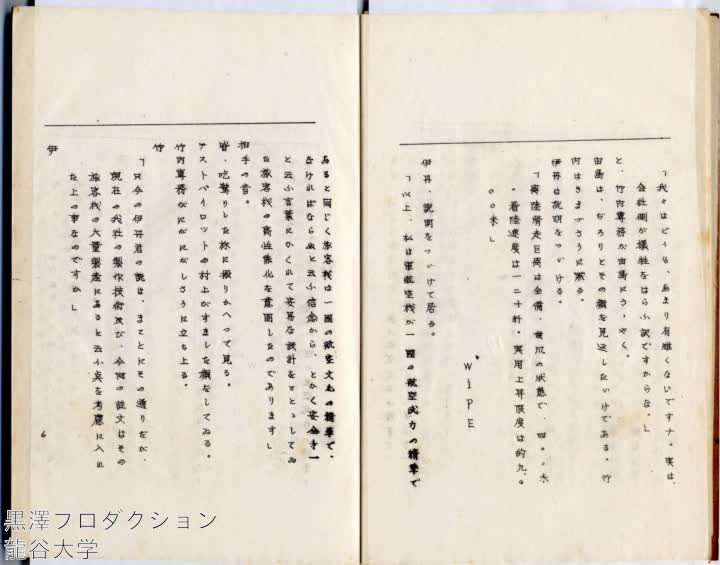 「我々はどうも、あまり有難くないですナ。実は、
会社側が犠牲をはらふ訳ですからな。」
と、竹内専務が由島にさゝやく。
由島は、ぢろりとその顔を見返しただけである。竹
内はきまづさうに黙る。
伊丹は説明をつゞける。
「離陸滑走距離は全備、荷爪の状態で、四〇〇米
着陸速度は一二〇粁。実用上昇限度は約九、〇
〇〇米」
WIPE
伊丹、説明をつゞけて居る。
「以上、私は軍航空機が一國の航空武力の精華で
あると同じく旅客機は一國の航空文化の精華で、
なければならぬと云ふ信念から、とかく安全第一
と云ふ言葉にかくれて安易な設計をことゝしてゐ
た旅客機の高性能化を意図したのであります」
拍手の音。
皆、吃驚りした様に振りかへって見る。
テストパイロットの村上がすました顔をしてゐる。
竹内専務がにがにがしさうに立ち上る。
竹
「只今の伊丹君の説は、まことにその通りだが、
現在の我社の製作技術及び、今回の註文はその
旅客機の大量製産にあると云ふ点を考慮に入れ
た上の事なのですか」
伊
6
黒澤プロダクション
龍谷大学